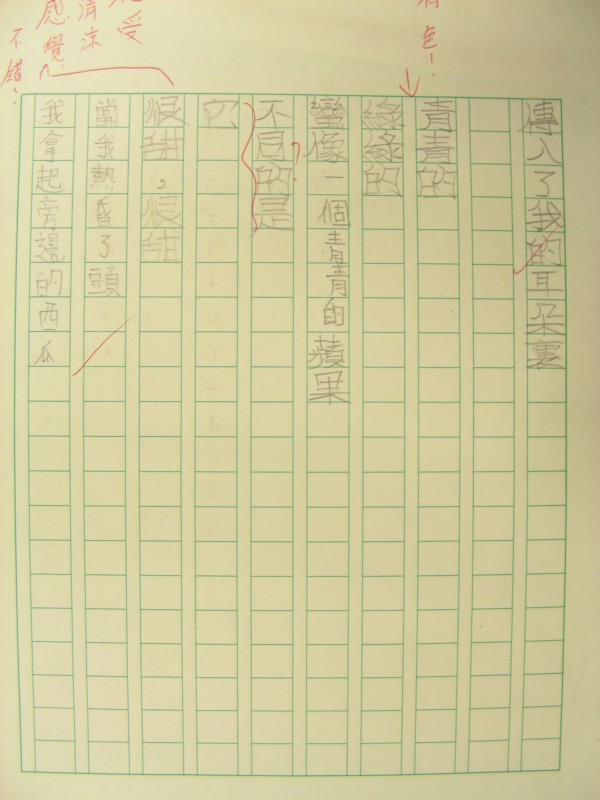 有色！
傳入了我的耳朵裏
青青的
綠綠的
蠻像一個青青的蘋果
不同的是
？
它
很甜，很甜
當我熱昏了頭
我拿起旁邊的西瓜
感受
清涼
感覺
不錯！